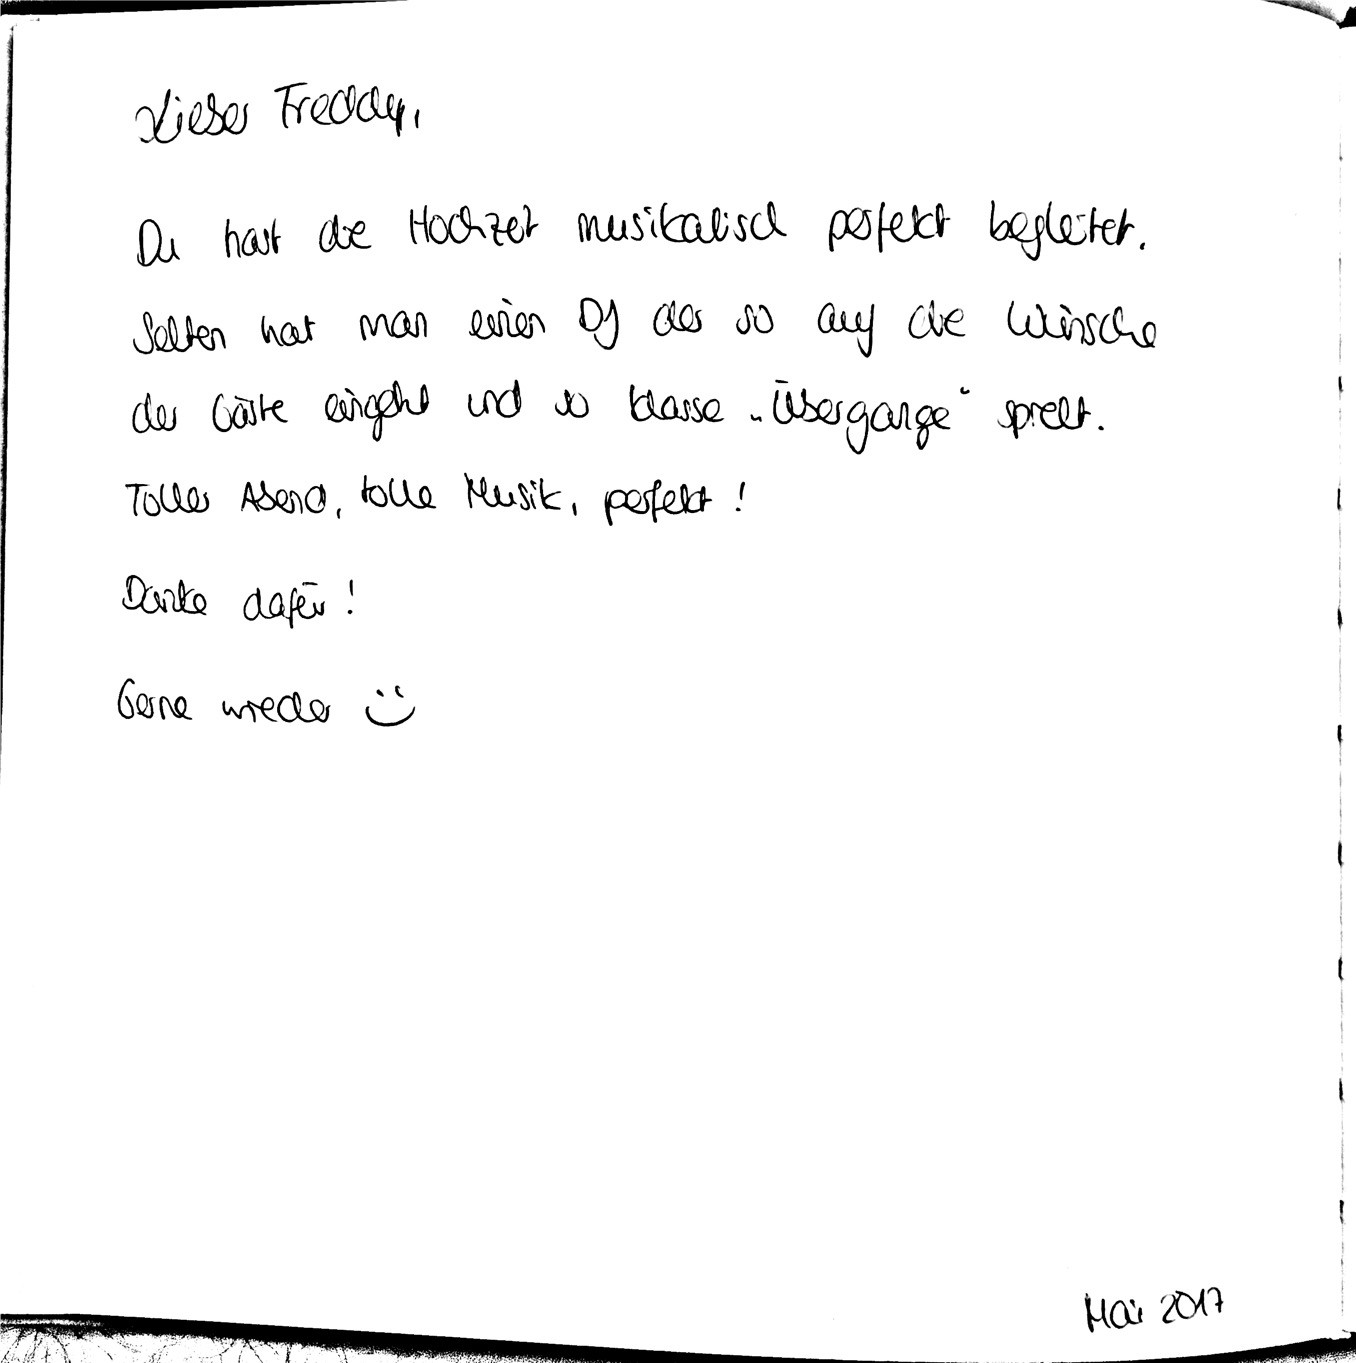 Lieber Freddy,
Du hast die Hochzeit musikalisch perfekt begleitet.
Selten hat man einen DJ der so auf die Wünsche
der Gäste eingeht und so klasse „Übergänge“ spielt.
Toller Abend, tolle Musik, perfekt!
Danke dafür!
Gerne wieder :)
Mai 2017